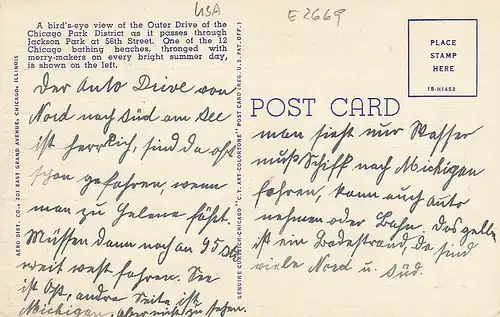 USA
E 2669
A bird's-eye view of the Outer Drive of the
Chicago Park District as it passes through
Jackson Park at 56th Street. One of the 12
Chicago bathing beaches, thronged with
merry-makers on every bright summer day,
is shown on the left.
AERO DIST. CO., 201 EAST GRAND AVENUE, CHICAGO, ILLINOIS
Der Auto Drive von
Nord nach Süd am See
ist herrlich, sind da oft
schon gefahren, wenn
man zu Helene fährt.
Müssen dann noch an 95 Str.
weit west fahren. See
ist Ost, andre Seite ist
Michigan, aber nicht zu sehen.
GENUINE CURTEICH-CHICAGO "C.T. ART-COLORTONE" POST CARD (REG. U.S. PAT. OFF.)
POST CARD
PLACE
STAMP
HERE
1B-H1452
man sieht nur Wasser
muß Schiff nach Michigan
fahren, kann auch Auto
nehmen oder Bahn. Das gelbe
ist ein Badestrand, da sind
viele Nord u. Süd.